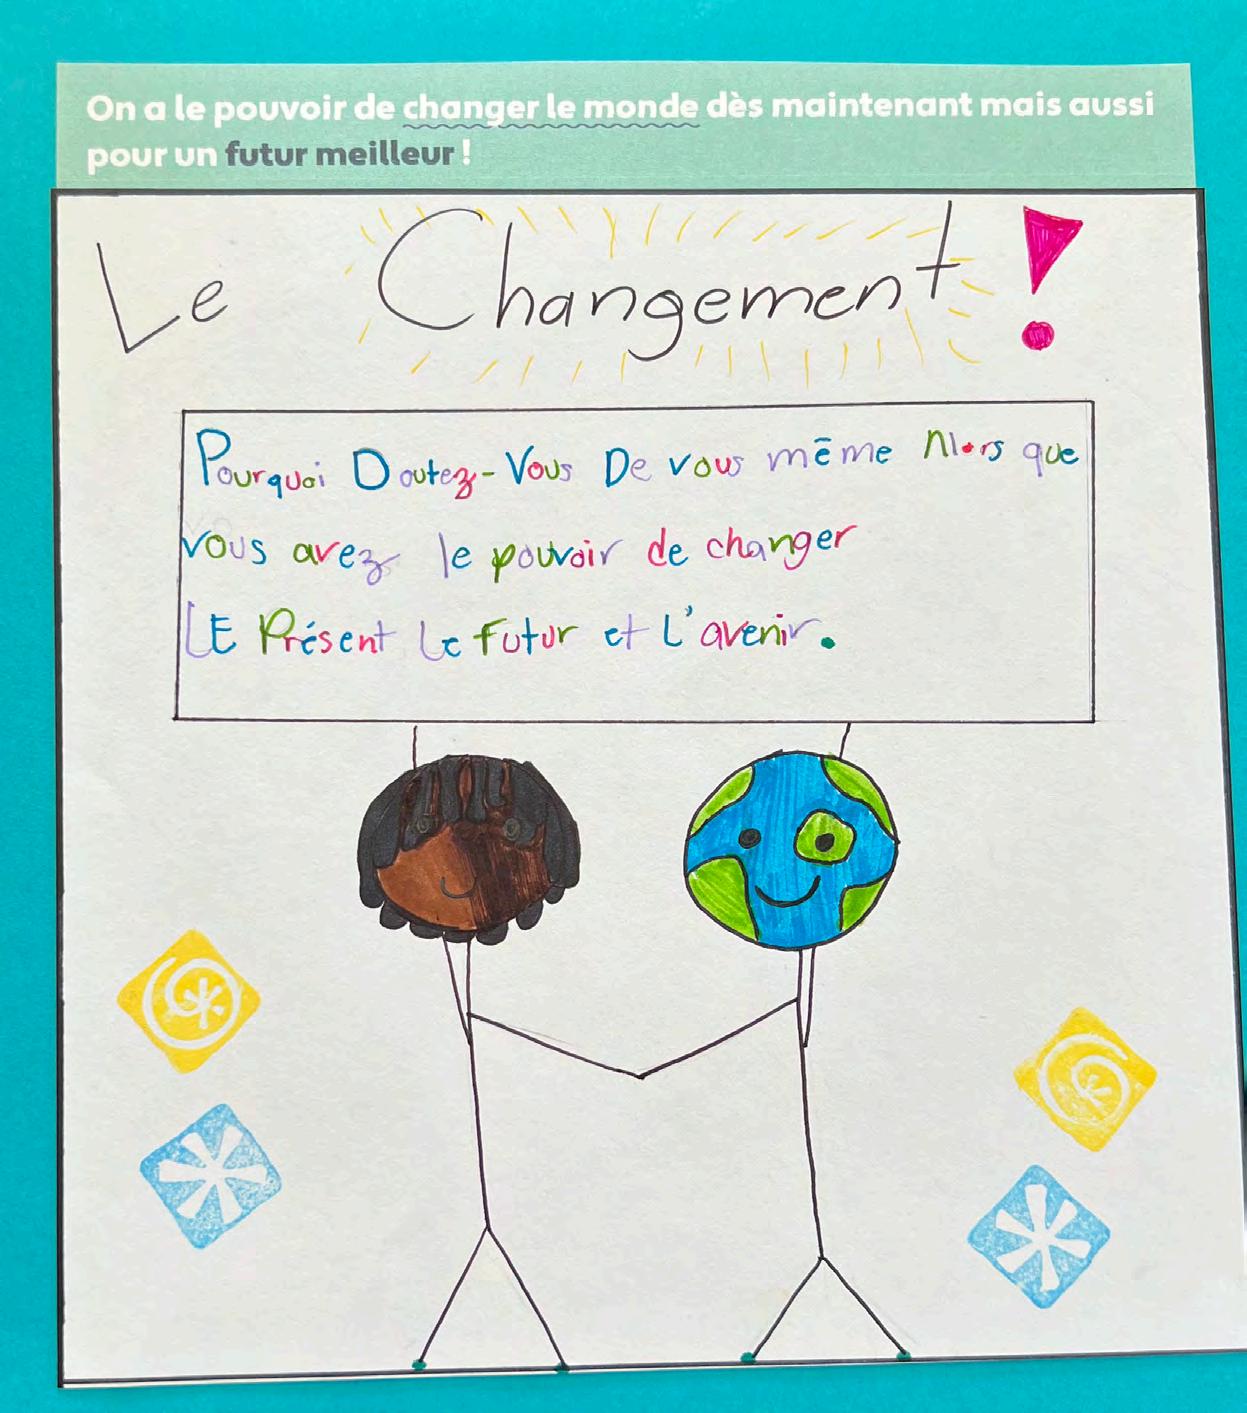 On a le pouvoir de changer le monde dès maintenant mais aussi
pour un futur meilleur !
Le Changement !
Pourquoi Doutez-Vous De vous mēme Alors que
vous avez le pouvoir de changer
LE Présent Le futur et L'avenir.